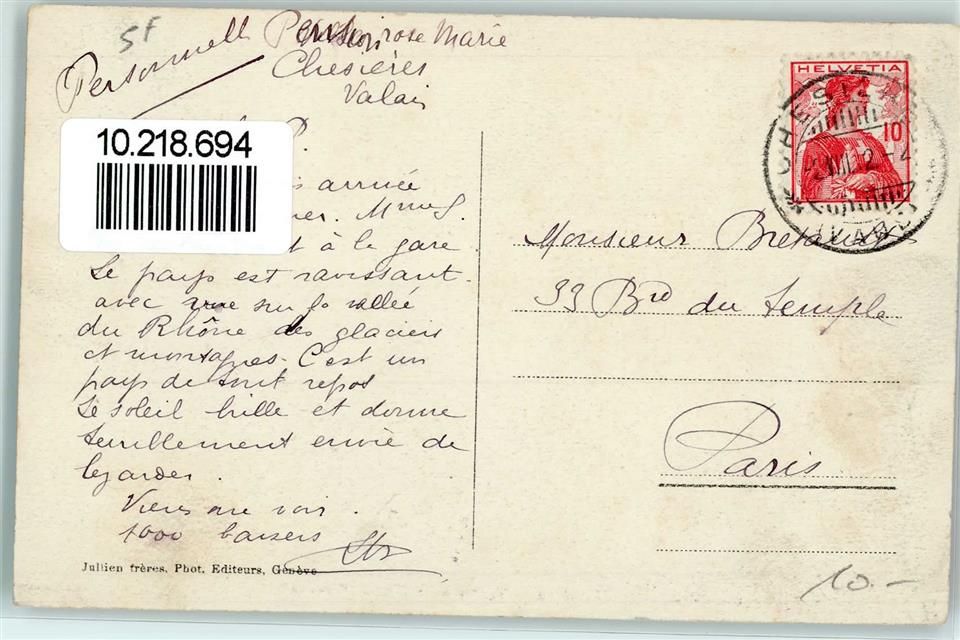 5F
Personnelle Pension rose Marie
Chesières
Valais
10.218.694
P.
arrivée
er. Mme
t à la gare
Le pays est ravissant
avec vue sur la vallée
du Rhône des glaciers
et montagnes. C'est un
pays de tout repos
Le soleil brille et donne
terriblement envie de
lézarder.
Viens me voir.
1000 baisers
Jullien frères, Phot. Editeurs, Genève
HELVETIA
10
CHESIÈRES
(VAUD)
Monsieur
33 Brd du Temple
Paris
10.-